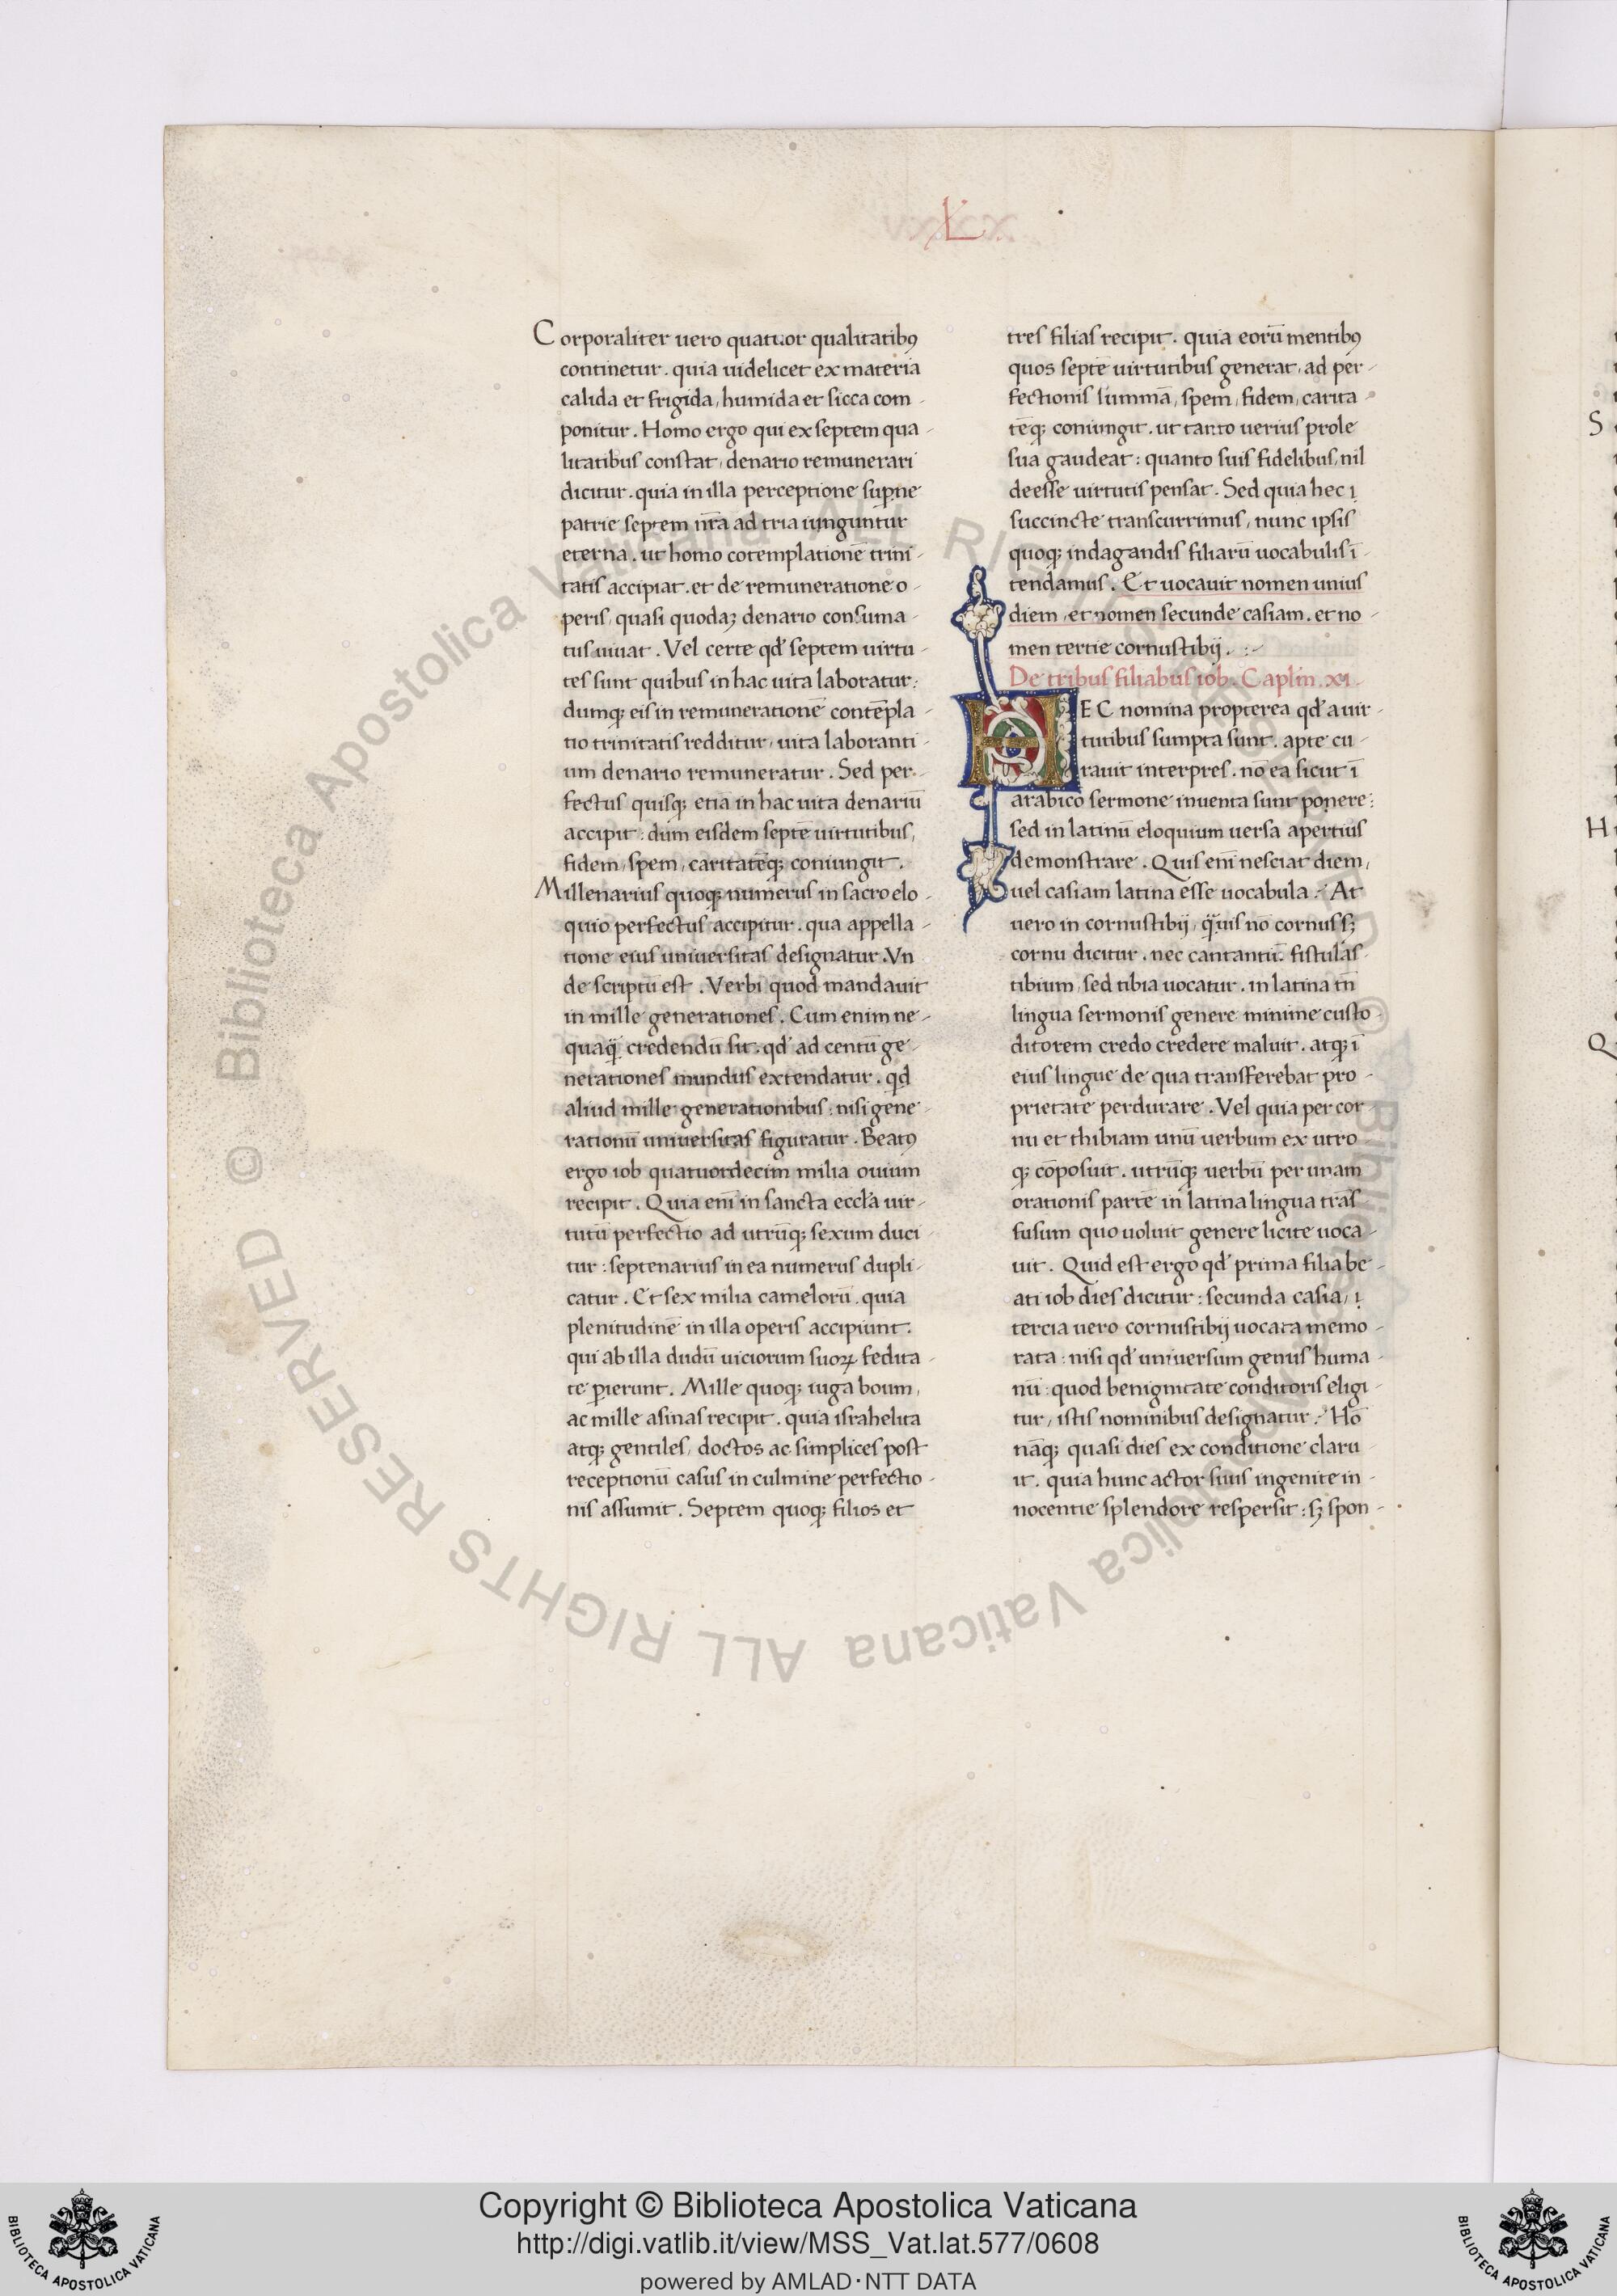 L
Corporaliter uero quatuor qualitatibꝫ
continetur . quia uidelicet ex materia
calida et frigida, humida et sicca com-
ponitur . Homo ergo qui ex septem qua-
litatibus constat, denario remunerari
dicitur . quia in illa perceptione sup̱ne
patrie septem nr̄a ad tria iunguntur
eterna . ut homo cotemplationē trini-
tatis accipiat . et de remuneratione o-
peris, quasi quodaꝫ denario consuma-
tus uiuat . Vel certe qđ septem uirtu-
tes sunt quibus in hac uita laboratur:
dumqꝫ eis in remunerationē contēpla-
tio trinitatis redditur, uita laboranti-
um denario remuneratur . Sed per-
fectus quisqꝫ etiā in hac uita denariū
accipit : dum eisdem septē uirtutibus,
fidem, spem, caritatēqꝫ coniungit .
Millenarius quoqꝫ numerus in sacro elo-
quio perfectus accipitur . qua appella-
tione eius uniuersitas designatur . Vn
de scriptū est . Verbi quod mandauit
in mille generationes . Cum enim ne-
quaq̄ credendū sit . qđ ad centū ge-
nerationes mundus extendatur . qđ
aliud mille generationibus : nisi gene-
rationū uniuersitas figuratur . Beatꝰ
ergo iob quatuordecim milia ouium
recipit . Quia enī in sancta eccła uir-
tutū perfectio ad utrūqꝫ sexum duci-
tur : septenarius in ea numerus dupli-
catur . Et sex milia camelorū . quia
plenitudinē in illa operis accipiunt .
qui ab illa dudū uiciorum suoꝝ fedita-
te ꝑierunt . Mille quoqꝫ iuga boum,
ac mille asinas recipit . quia israhelita
atqꝫ gentiles, doctos ac simplices post
receptionū casus in culmine perfectio-
nis assumit . Septem quoqꝫ filios et
tres filias recipit . quia eorū mentibꝰ
quos septē uirtutibus generat, ad per-
fectionis summā, spem, fidem, carita-
tēqꝫ coniungit . ut tanto uerius prole
sua gaudeat : quanto suis fidelibus, nil
deesse uirtutis pensat . Sed quia hec ı
succincte transcurrimus, nunc ipsis
quoqꝫ indagandis filiarū uocabulis ī-
tendamus . Et uocauit nomen unius
diem, et nomen secunde casiam . et no-
men tertie cornustibij . :-
De tribus filiabus iob . Caplm . xi .
HEC nomina propterea qđ a uir-
tutibus sumpta sunt . apte cu-
rauit interpres . nō ea sicut ī
arabico sermone inuenta sunt ponere :
sed in latinū eloquium uersa apertius
demonstrare . Quis enī nesciat diem,
uel casiam latina esse uocabula . At
uero in cornustibij, q̄uis nō cornus sꝫ
cornu dicitur . nec cantantū fistulas
tibium, sed tibia uocatur . in latina tn̄
lingua sermonis genere minime custo-
ditorem credo credere maluit . atqꝫ ī
eius lingue de qua transferebat pro-
prietate perdurare . Vel quia per cor-
nu et thibiam unū uerbum ex utro-
qꝫ cōposuit . utrūqꝫ uerbū per unam
orationis partē in latina lingua trās-
fusum quo uoluit genere licite uoca-
uit . Quid est ergo qđ prima filia be-
ati iob dies dicitur : secunda casia, ı
tercia uero cornustibij uocata memo-
rata : nisi qđ uniuersum genus huma-
nū : quod benignitate conditoris eligi-
tur, istis nominibus designatur . Hō
nāqꝫ quasi dies ex conditione claru-
it . quia hunc actor suus ingenite in-
nocentie splendore respersit : sꝫ spon-
S
H
Q
© Biblioteca Apostolica Vaticana ALL RIGHTS RESERVED © Biblioteca Apostolica Vaticana ALL RIGHTS RESERVED
Copyright © Biblioteca Apostolica Vaticana
http://digi.vatlib.it/view/MSS_Vat.lat.577/0608
powered by AMLAD·NTT DATA
BIBLIOTECA APOSTOLICA VATICANA
BIBLIOTECA APOSTOLICA VATICANA